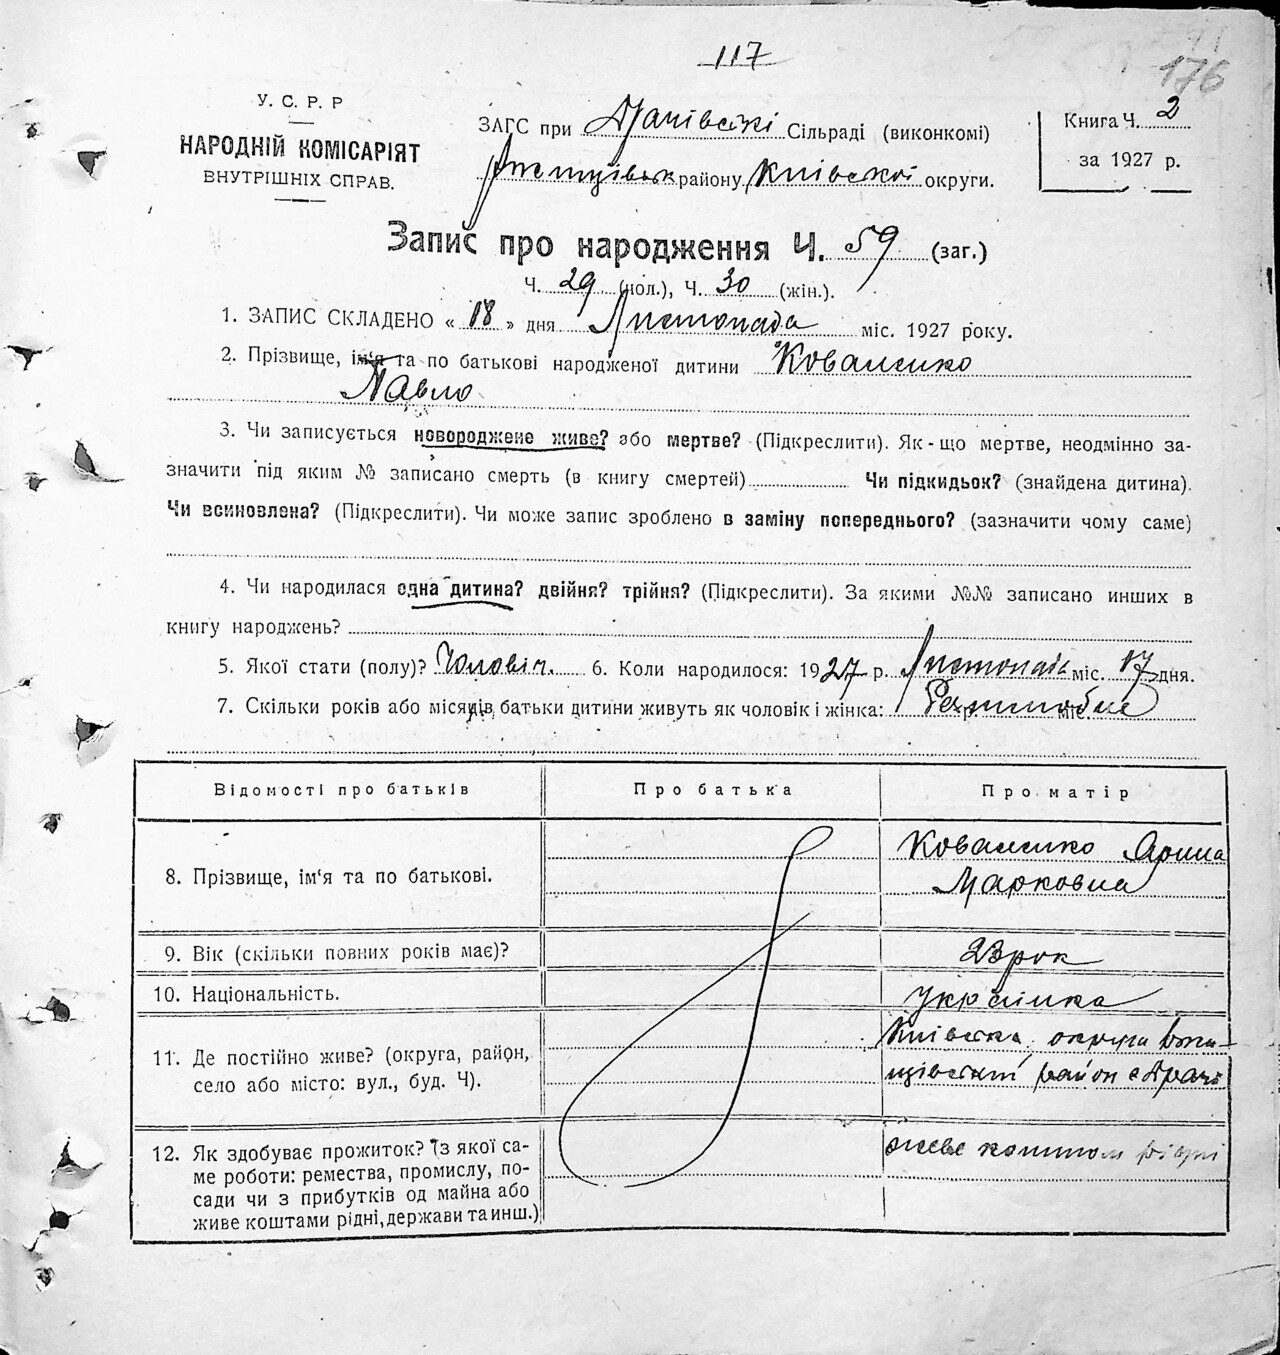 117
176
У. С. Р. Р
НАРОДНІЙ КОМІСАРІЯТ
ВНУТРІШНІХ СПРАВ.
ЗАГС при Сільраді (виконкомі)
району Київської округи.
Книга Ч. 2
за 1927 р.
Запис про народження Ч. 59 (заг.)
Ч. 29 (чол.), Ч. 30 (жін.).
1. ЗАПИС СКЛАДЕНО « 18 » дня Листопада міс. 1927 року.
2. Прізвище, ім'я та по батькові народженої дитини Коваленко
Павло
3. Чи записується новороджене живе? або мертве? (Підкреслити). Як-що мертве, неодмінно за-
значити під яким № записано смерть (в книгу смертей) Чи підкидьок? (знайдена дитина).
Чи всиновлена? (Підкреслити). Чи може запис зроблено в заміну попереднього? (зазначити чому саме)
4. Чи народилася одна дитина? двійня? трійня? (Підкреслити). За якими №№ записано инших в
книгу народжень?
5. Якої стати (полу)? Чоловіч. 6. Коли народилося: 1927 р. міс. 17 дня.
7. Скільки років або місяців батьки дитини живуть як чоловік і жінка:
Відомості про батьків
Про батька
Про матір
8. Прізвище, ім'я та по батькові.
Коваленко Ярина
Марковна
9. Вік (скільки повних років має)?
23 рок
10. Національність.
Українка
11. Де постійно живе? (округа, район,
село або місто: вул., буд. Ч).
Київська округа Ржи-
щівський район с
12. Як здобуває прожиток? (з якої са-
ме роботи: ремества, промислу, по-
сади чи з прибутків од майна або
живе коштами рідні, держави та инш.)
живе коштом рідні